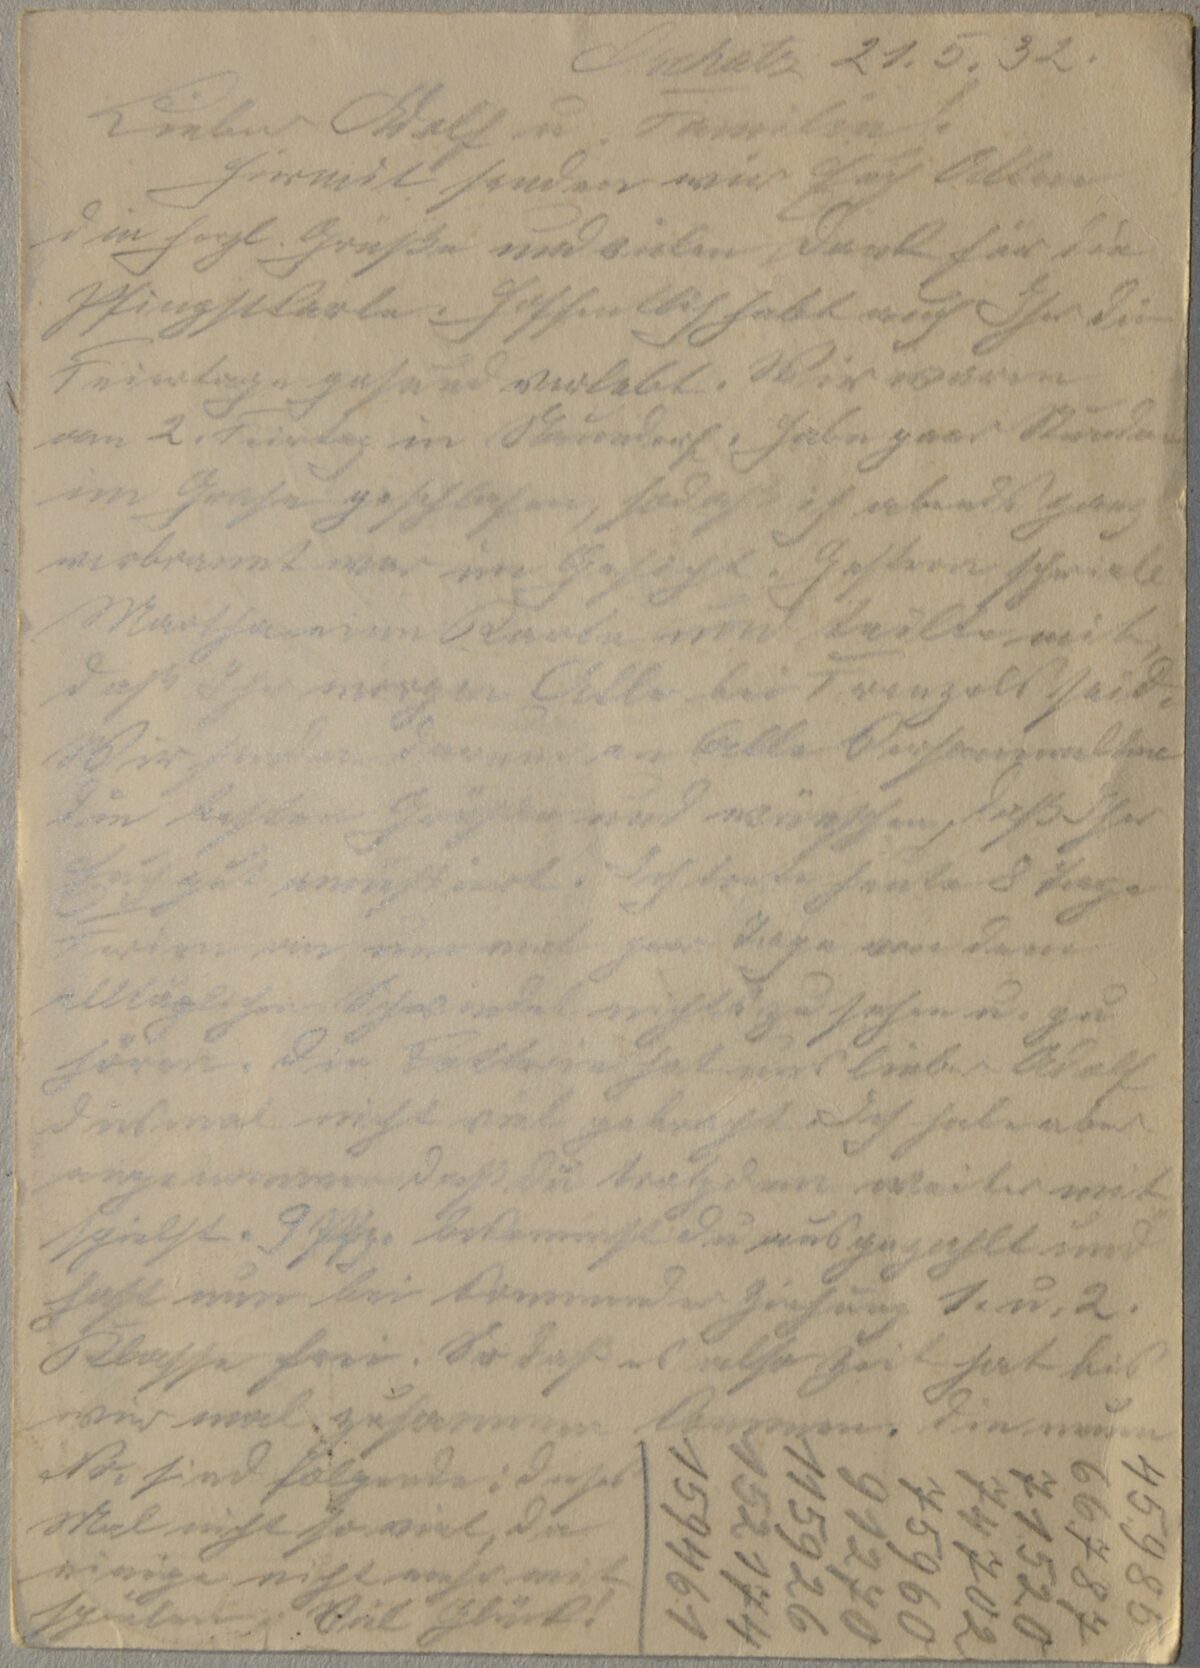 21.5.32.
Lieber Adolf u. Familie!
Hiermit senden wir Euch Allen
die herzl. Grüße und vielen Dank für die
Pfingstkarte. Hoffentlich habt auch Ihr die
Feiertage gesund verlebt. Wir waren
am 2. Feiertag in Naundorf. Habe paar Stunden
im Grase geschlafen, sodaß ich abends ganz
verbrannt war im Gesicht. Gestern schrieb
Martha eine Karte und teilte mit,
daß Ihr morgen Alle bei Frenzels seid.
Wir senden darum an Alle Versammelten
die besten Grüße und wünschen, daß Ihr
Euch gut amüsiert. Ich trete heute 8 Tage
Ferien an um mal paar Tage von dem
alltäglichen Schwindel nichts zu sehen u. zu
hören. Die Lotterie hat uns lieber Adolf
diesmal nicht viel gebracht. Ich habe aber
angenommen daß Du trotzdem weiter mit
spielst. 9 Pfg. bekommst Du ausgezahlt und
hast nun bei kommender Ziehung 1. u. 2.
Klasse frei. So daß es also Zeit hat bis
wir mal zusammen kommen. Die neuen
No. sind folgende: dieses
Mal nicht so viel, da
einige nicht mehr mit
spielen. Viel Glück!
45985
66787
71520
74702
75960
91270
115926
152174
159461